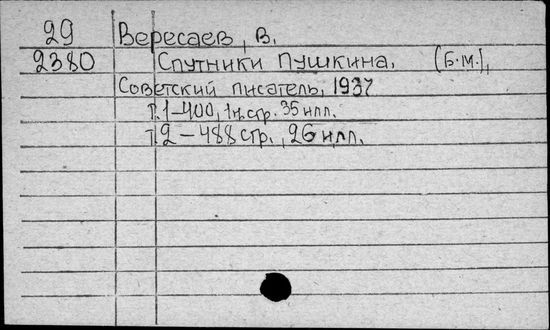 29 Вересаев, В.
2380 Спутники Пушкина. (Б.м.),
Советский писатель, 1937
т.1-400, 1н.стр. 35 илл.
т.2-488 стр., 26 илл.